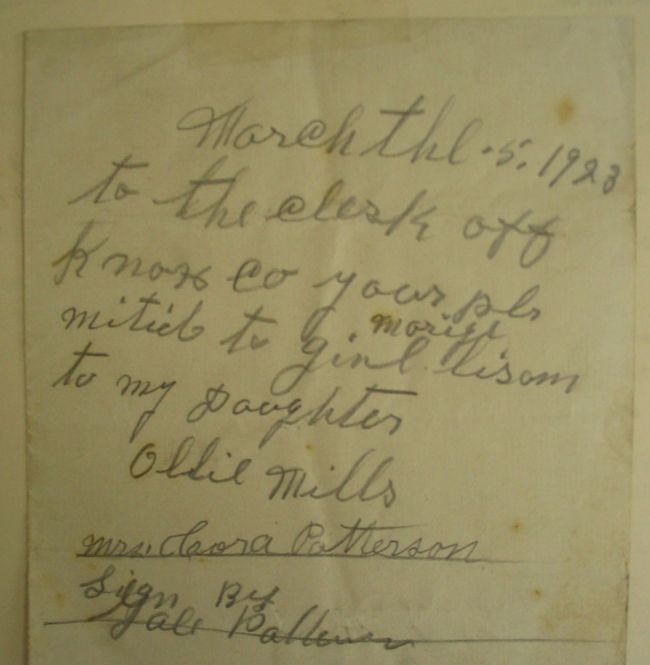 March thl. 5. 1923
to the clerk off
Knox co your per
mitid to girl marige lisom
to my Daughter
Ollie Mills
mrs. Cora Patterson
Sign By
Patterson